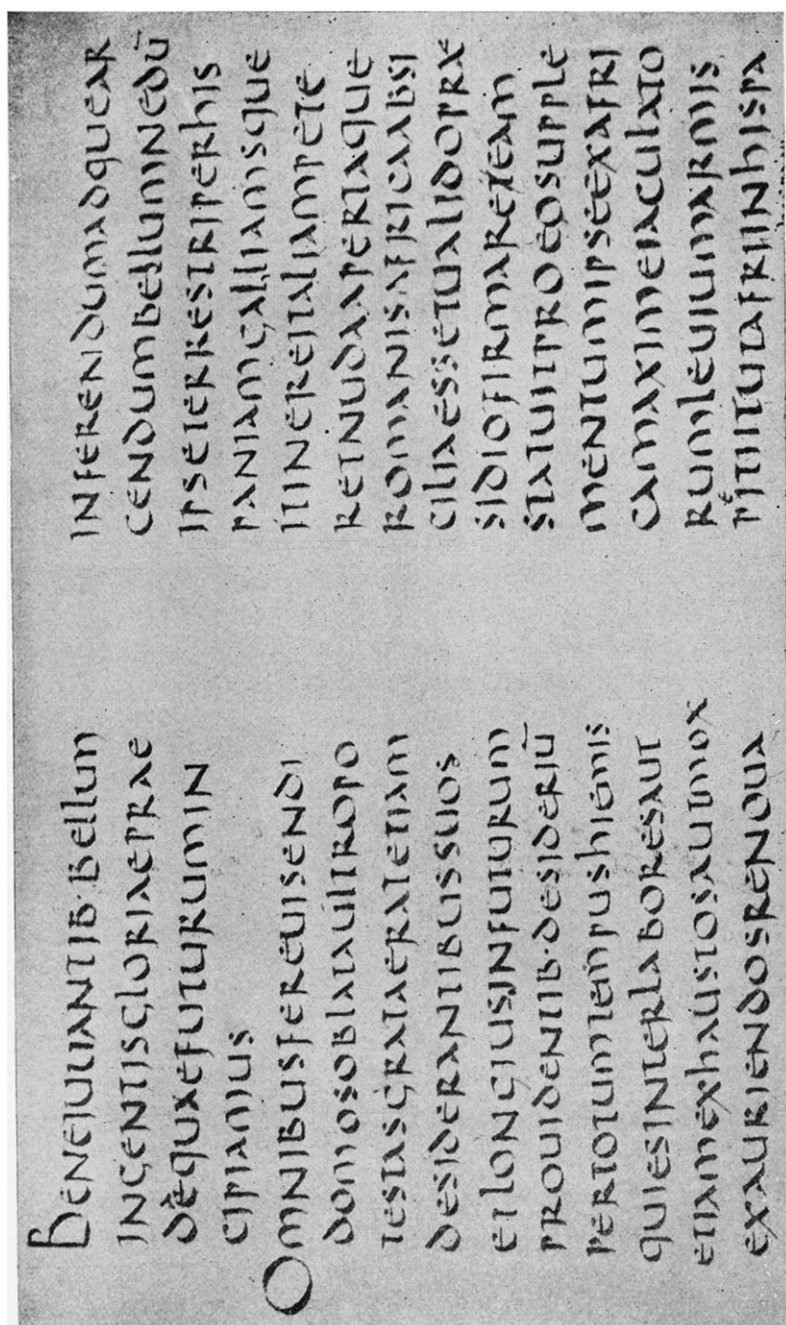 BENEIUUANTIB·BELLUM
INGENTISGLORIAEPRAE
DEQUAEFUTURUMIN
CIPIAMUS
OMNIBUSFEREUISENDI
DOMOSOBLATAULTROPO
TESTASGRATAERATETIAM
DESIDERANTIBUSSUOS
ETLONGIUSINFUTURUM
PROUIDENTIB·DESIDERIŪ
PERTOTUMTEMPUSHIEMIS
QUIESINTERLABORESAUT
ETIAMEXHAUSTOSAUTMOX
EXAURIENDOSRENOUA
INFERENDUMADQUEAR
CENDUMBELLUMNEDŪ
IPSETERRESTRIPERHIS
PANIAMGALLIAMSQUE
ITINEREITALIAMPETE
RETNUDAAPERTAQUE
ROMANISAFRICAABSI
CILIAESSETUALIDOPRAE
SIDIOFIRMARETEAM
STATUITPROEOSUPPLE
MENTUMIPSEEXAFRI
CAMAXIMEIACULATO
RUMLEUIUMARMIS
PETIITUTAFRIINHISPA